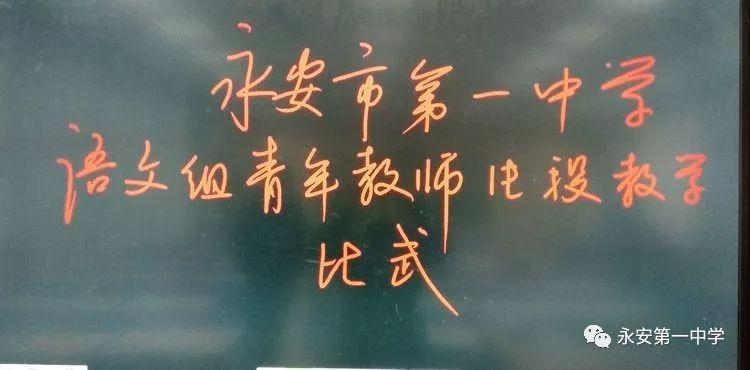 永安市第一中学
语文组青年教师片段教学
比武
永安第一中学